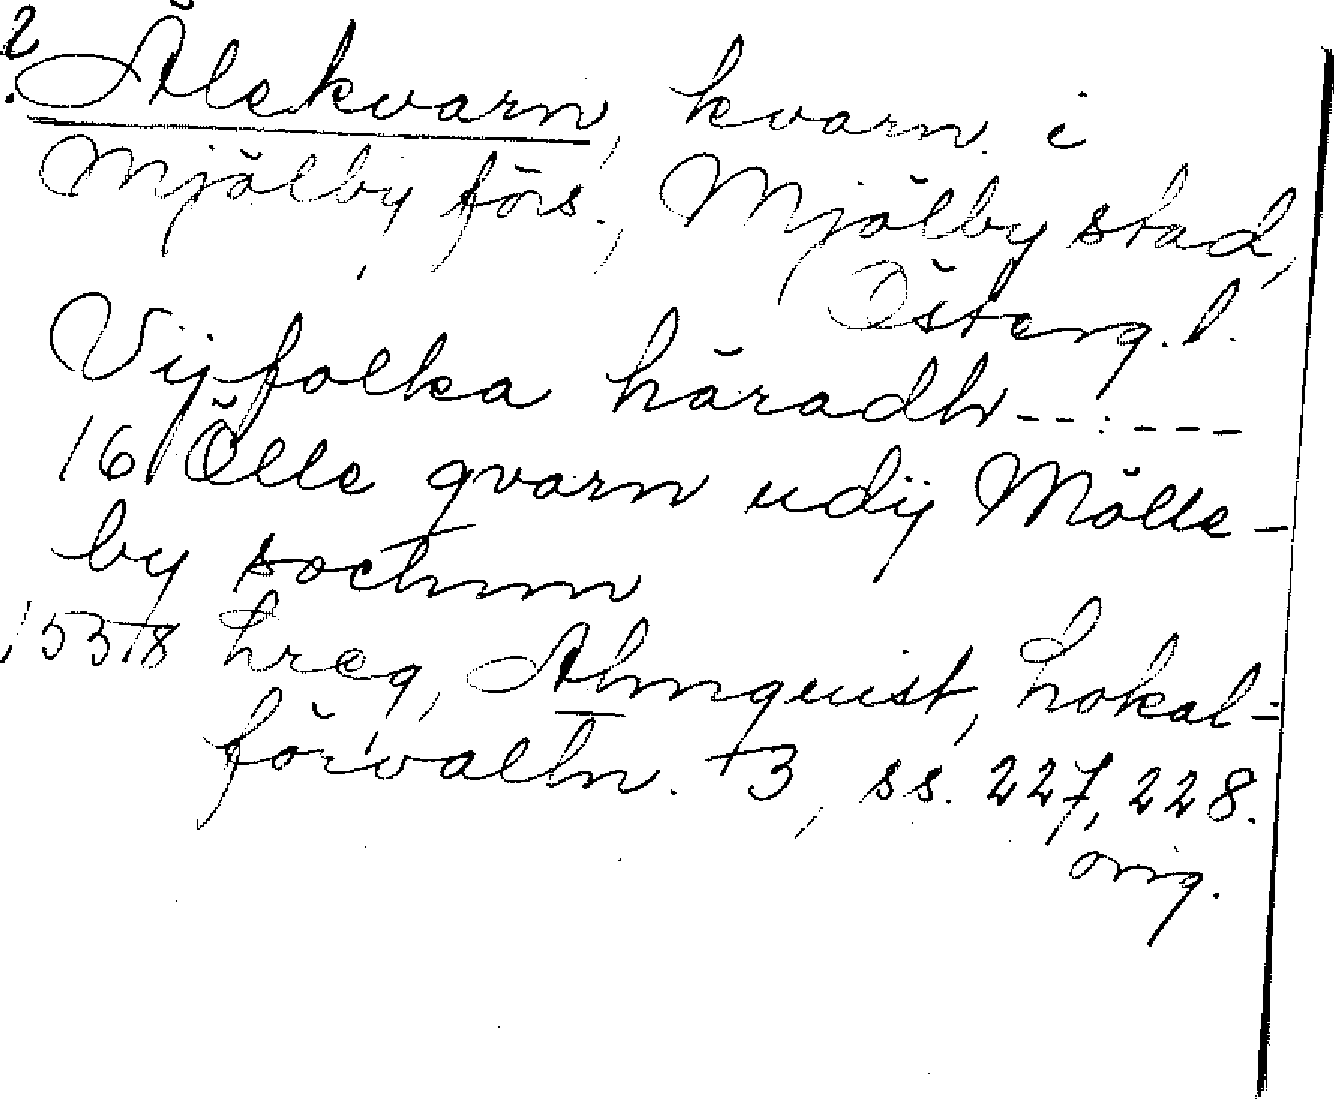 ? Ålekvarn, kvarn i
Mjölby förs., Mjölby stad,
Österg. l.
Vijfolka häradh --:---
16 Ölle qvarn udij Mölle-
by sochnn
1538 Lreg, Almquist, Lokal-
förvaltn. 3, ss. 227, 228.
orig.